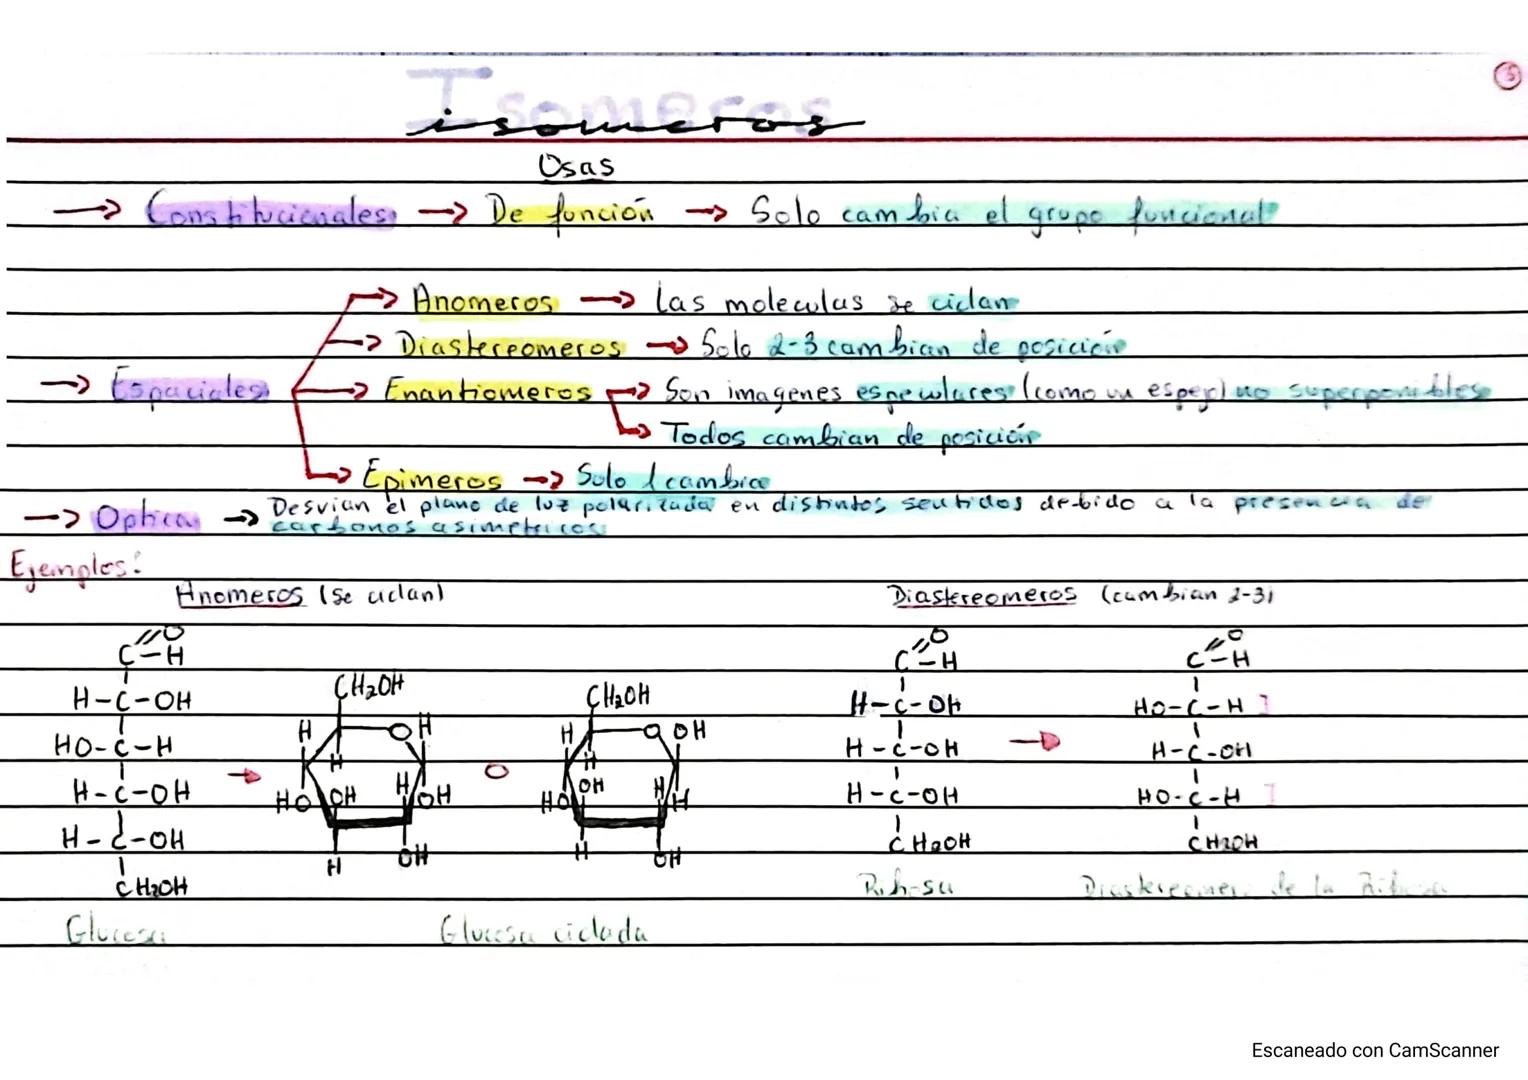 5
Isomeros
isomeros
Osas
→ Constitucionales → De función → Solo cambia el grupo funcional
→ Anomeros → Las moleculas se ciclan
→ Diastereomeros → Solo 2-3 cambian de posición
→ Espaciales → Enantiomeros → Son imagenes especulares (como un espejo) no superponibles
→ Todos cambian de posición
→ Epimeros → Solo 1 cambia
→ Optica → Desvian el plano de luz polarizada en distintos sentidos debido a la presencia de
carbonos asimetricos
Ejemplos:
Anomeros (se ciclan)
C=O
C-H
H-C-OH
HO-C-H
H-C-OH
H-C-OH
CH2OH
Glucosa
→
CH2OH
H O H
H
HO OH H OH
H OH
o
CH2OH
H O OH
H
HO OH H H
H OH
Glucosa ciclada
Diastereomeros (cambian 2-3)
O
C-H
H-C-OH
H-C-OH
H-C-OH
CH2OH
Ribosa
→
O
C-H
HO-C-H
H-C-OH
HO-C-H
CH2OH
Diastereomero de la Ribosa
Escaneado con CamScanner